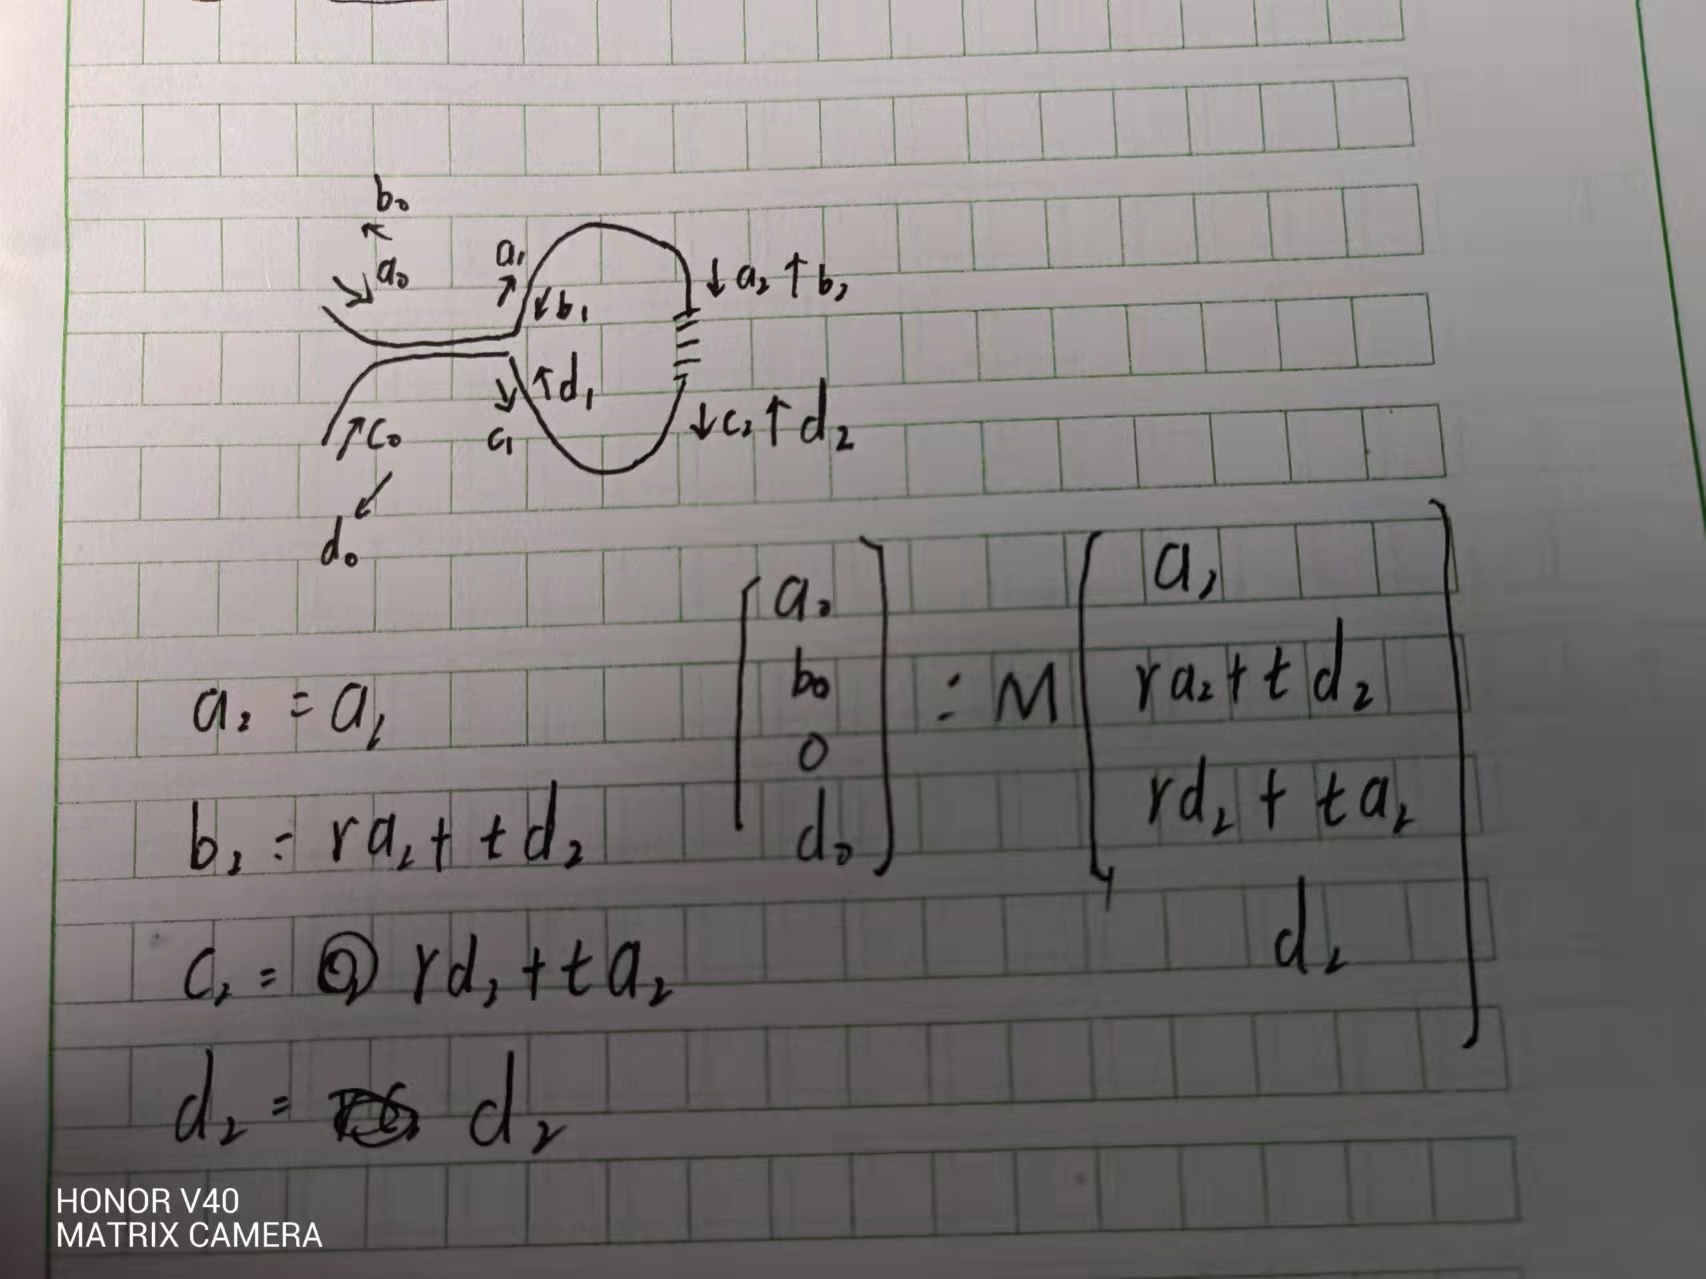 b₀
a₀
a₁
b₁
↓ a₂ ↑ b₂
↑ d₁
c₁
↑ c₀
↓ c₂ ↑ d₂
d₀
a₂ = a₂
b₂ = ra₂ + t d₂
c₂ = rd₂ + t a₂
d₂ = d₂
[ a₀
b₀
0
d₀ ] = M [ a₂
ra₂ + t d₂
rd₂ + t a₂
d₂ ]
HONOR V40
MATRIX CAMERA